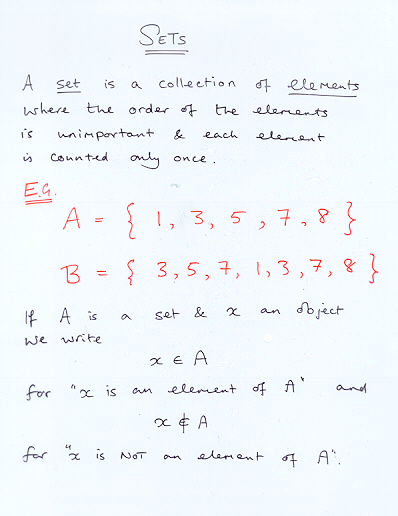 SETS
A set is a collection of elements
where the order of the elements
is unimportant & each element
is counted only once.
E.G.
A = { 1, 3, 5, 7, 8 }
B = { 3, 5, 7, 1, 3, 7, 8 }
If A is a set & x an object
we write
x ∈ A
for "x is an element of A" and
x ∉ A
for "x is NOT an element of A".